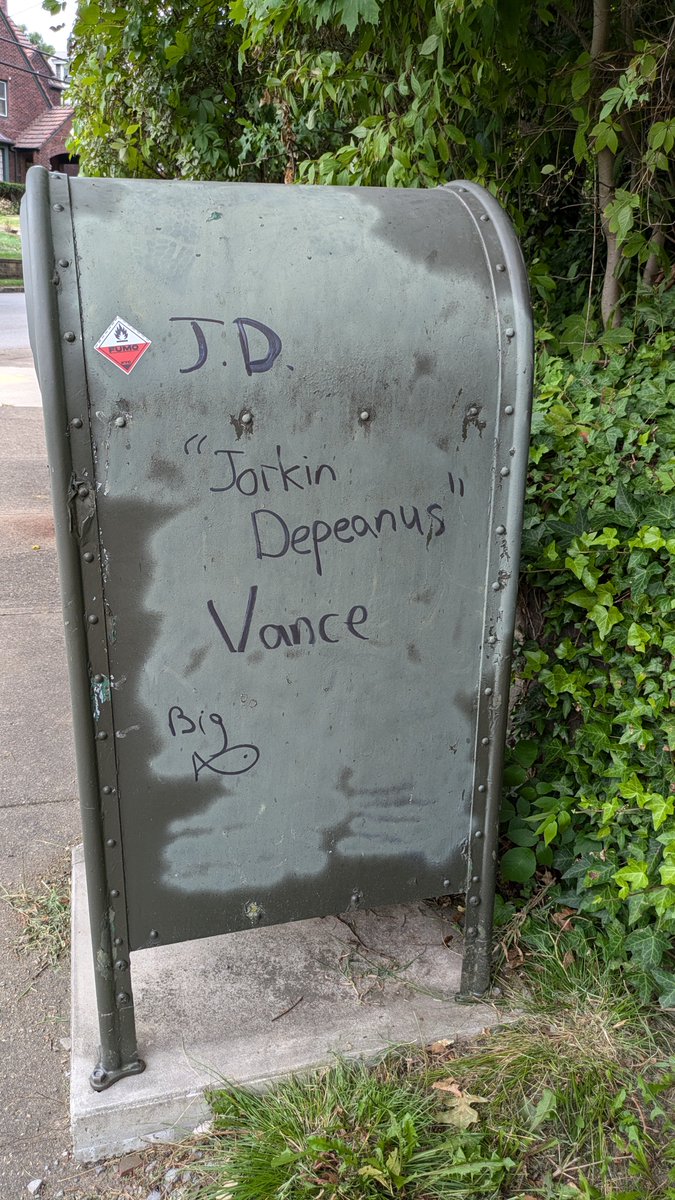 J.D.
FUMO
"Jorkin
Depeanus"
Vance
Big